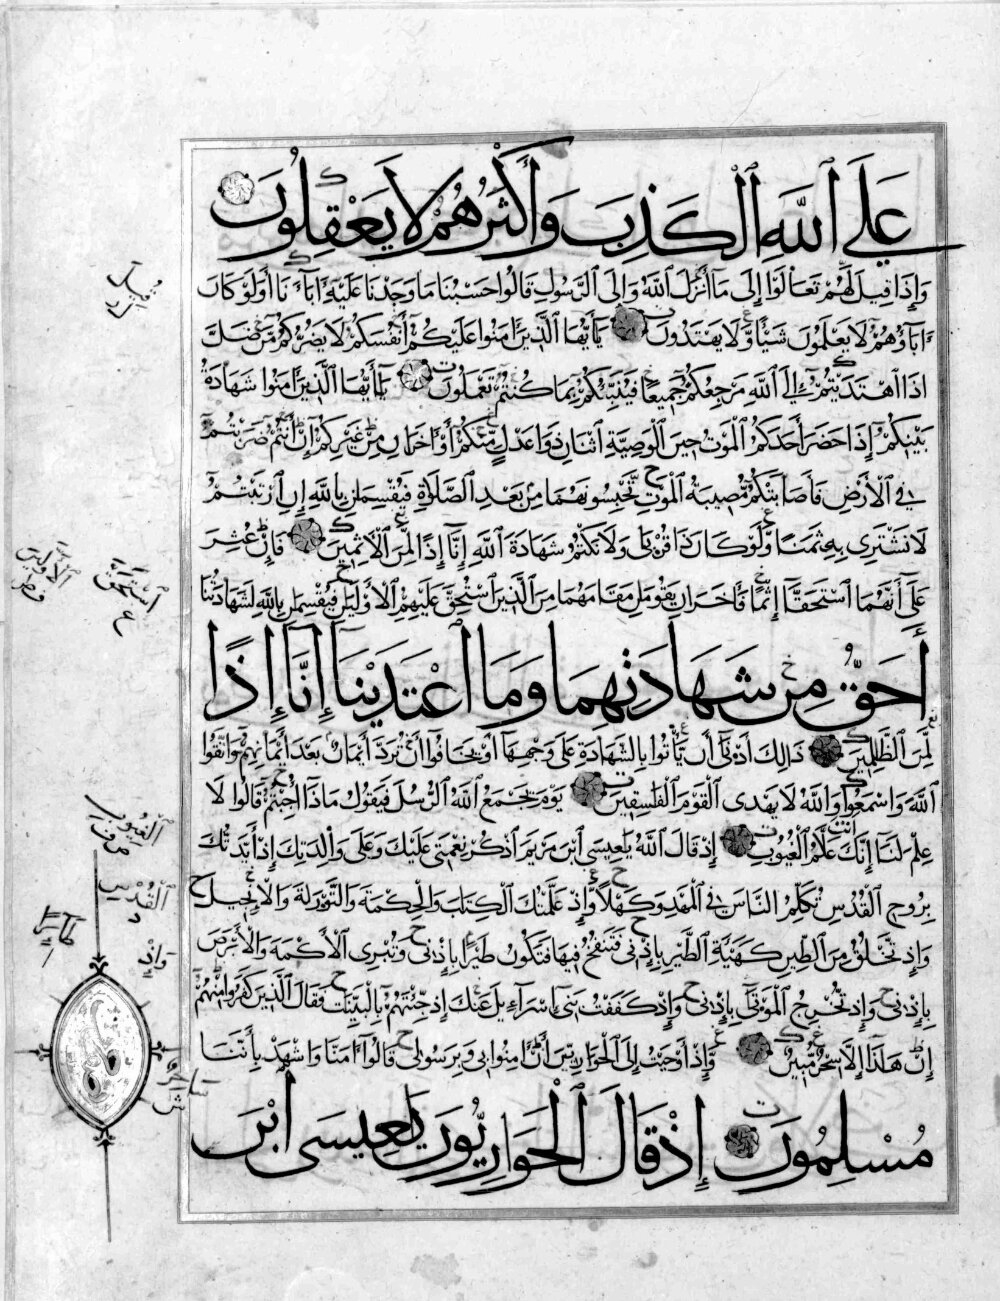 عَلَى ٱللَّهِ ٱلْكَذِبَ وَأَكْثَرُهُمْ لَا يَعْقِلُونَ
وَإِذَا قِيلَ لَهُمْ تَعَالَوْا إِلَى مَا أَنْزَلَ ٱللَّهُ وَإِلَى ٱلرَّسُولِ قَالُوا حَسْبُنَا مَا وَجَدْنَا عَلَيْهِ ءَابَآءَنَا أَوَلَوْ كَانَ
ءَابَاؤُهُمْ لَا يَعْلَمُونَ شَيْـًٔا وَلَا يَهْتَدُونَ يَٰٓأَيُّهَا ٱلَّذِينَ ءَامَنُوا عَلَيْكُمْ أَنْفُسَكُمْ لَا يَضُرُّكُمْ مَنْ ضَلَّ
إِذَا ٱهْتَدَيْتُمْ إِلَى ٱللَّهِ مَرْجِعُكُمْ جَمِيعًا فَيُنَبِّئُكُمْ بِمَا كُنْتُمْ تَعْمَلُونَ يَٰٓأَيُّهَا ٱلَّذِينَ ءَامَنُوا شَهَادَةُ
بَيْنِكُمْ إِذَا حَضَرَ أَحَدَكُمُ ٱلْمَوْتُ حِينَ ٱلْوَصِيَّةِ ٱثْنَانِ ذَوَا عَدْلٍ مِنْكُمْ أَوْ ءَاخَرَانِ مِنْ غَيْرِكُمْ إِنْ أَنْتُمْ ضَرَبْتُمْ
فِي ٱلْأَرْضِ فَأَصَابَتْكُمْ مُصِيبَةُ ٱلْمَوْتِ تَحْبِسُونَهُمَا مِنْ بَعْدِ ٱلصَّلَوٰةِ فَيُقْسِمَانِ بِٱللَّهِ إِنِ ٱرْتَبْتُمْ
لَا نَشْتَرِي بِهِ ثَمَنًا وَلَوْ كَانَ ذَا قُرْبَى وَلَا نَكْتُمُ شَهَادَةَ ٱللَّهِ إِنَّا إِذًا لَمِنَ ٱلْـَٔاثِمِينَ فَإِنْ عُثِرَ
عَلَى أَنَّهُمَا ٱسْتَحَقَّا إِثْمًا فَـَٔاخَرَانِ يَقُومَانِ مَقَامَهُمَا مِنَ ٱلَّذِينَ ٱسْتُحِقَّ عَلَيْهِمُ ٱلْأَوْلَيَانِ فَيُقْسِمَانِ بِٱللَّهِ لَشَهَادَتُنَا
أَحَقُّ مِنْ شَهَادَتِهِمَا وَمَا ٱعْتَدَيْنَا إِنَّا إِذًا
لَمِنَ ٱلظَّٰلِمِينَ ذَٰلِكَ أَدْنَى أَنْ يَأْتُوا بِٱلشَّهَادَةِ عَلَى وَجْهِهَا أَوْ يَخَافُوا أَنْ تُرَدَّ أَيْمَانٌ بَعْدَ أَيْمَانِهِمْ وَٱتَّقُوا
ٱللَّهَ وَٱسْمَعُوا وَٱللَّهُ لَا يَهْدِى ٱلْقَوْمَ ٱلْفَٰسِقِينَ يَوْمَ يَجْمَعُ ٱللَّهُ ٱلرُّسُلَ فَيَقُولُ مَاذَا أُجِبْتُمْ قَالُوا لَا
عِلْمَ لَنَا إِنَّكَ أَنْتَ عَلَّامُ ٱلْغُيُوبِ إِذْ قَالَ ٱللَّهُ يَٰعِيسَى ٱبْنَ مَرْيَمَ ٱذْكُرْ نِعْمَتِي عَلَيْكَ وَعَلَى وَٰلِدَتِكَ إِذْ أَيَّدْتُكَ
بِرُوحِ ٱلْقُدُسِ تُكَلِّمُ ٱلنَّاسَ فِي ٱلْمَهْدِ وَكَهْلًا وَإِذْ عَلَّمْتُكَ ٱلْكِتَٰبَ وَٱلْحِكْمَةَ وَٱلتَّوْرَىٰةَ وَٱلْإِنْجِيلَ
وَإِذْ تَخْلُقُ مِنَ ٱلطِّينِ كَهَيْئَةِ ٱلطَّيْرِ بِإِذْنِي فَتَنْفُخُ فِيهَا فَتَكُونُ طَيْرًا بِإِذْنِي وَتُبْرِئُ ٱلْأَكْمَهَ وَٱلْأَبْرَصَ
بِإِذْنِي وَإِذْ تُخْرِجُ ٱلْمَوْتَىٰ بِإِذْنِي وَإِذْ كَفَفْتُ بَنِي إِسْرَآءِيلَ عَنْكَ إِذْ جِئْتَهُمْ بِٱلْبَيِّنَٰتِ فَقَالَ ٱلَّذِينَ كَفَرُوا مِنْهُمْ
إِنْ هَٰذَا إِلَّا سِحْرٌ مُبِينٌ وَإِذْ أَوْحَيْتُ إِلَى ٱلْحَوَارِيِّينَ أَنْ ءَامِنُوا بِي وَبِرَسُولِي قَالُوا ءَامَنَّا وَٱشْهَدْ بِأَنَّنَا
مُسْلِمُونَ إِذْ قَالَ ٱلْحَوَارِيُّونَ يَٰعِيسَى ٱبْنَ
قيل
ٱسْتَحَقَّ
ع
ٱلْأَوَّلِينَ
ٱلْغُيُوبِ
ٱلْقُدْسِ
د
وَإِذْ